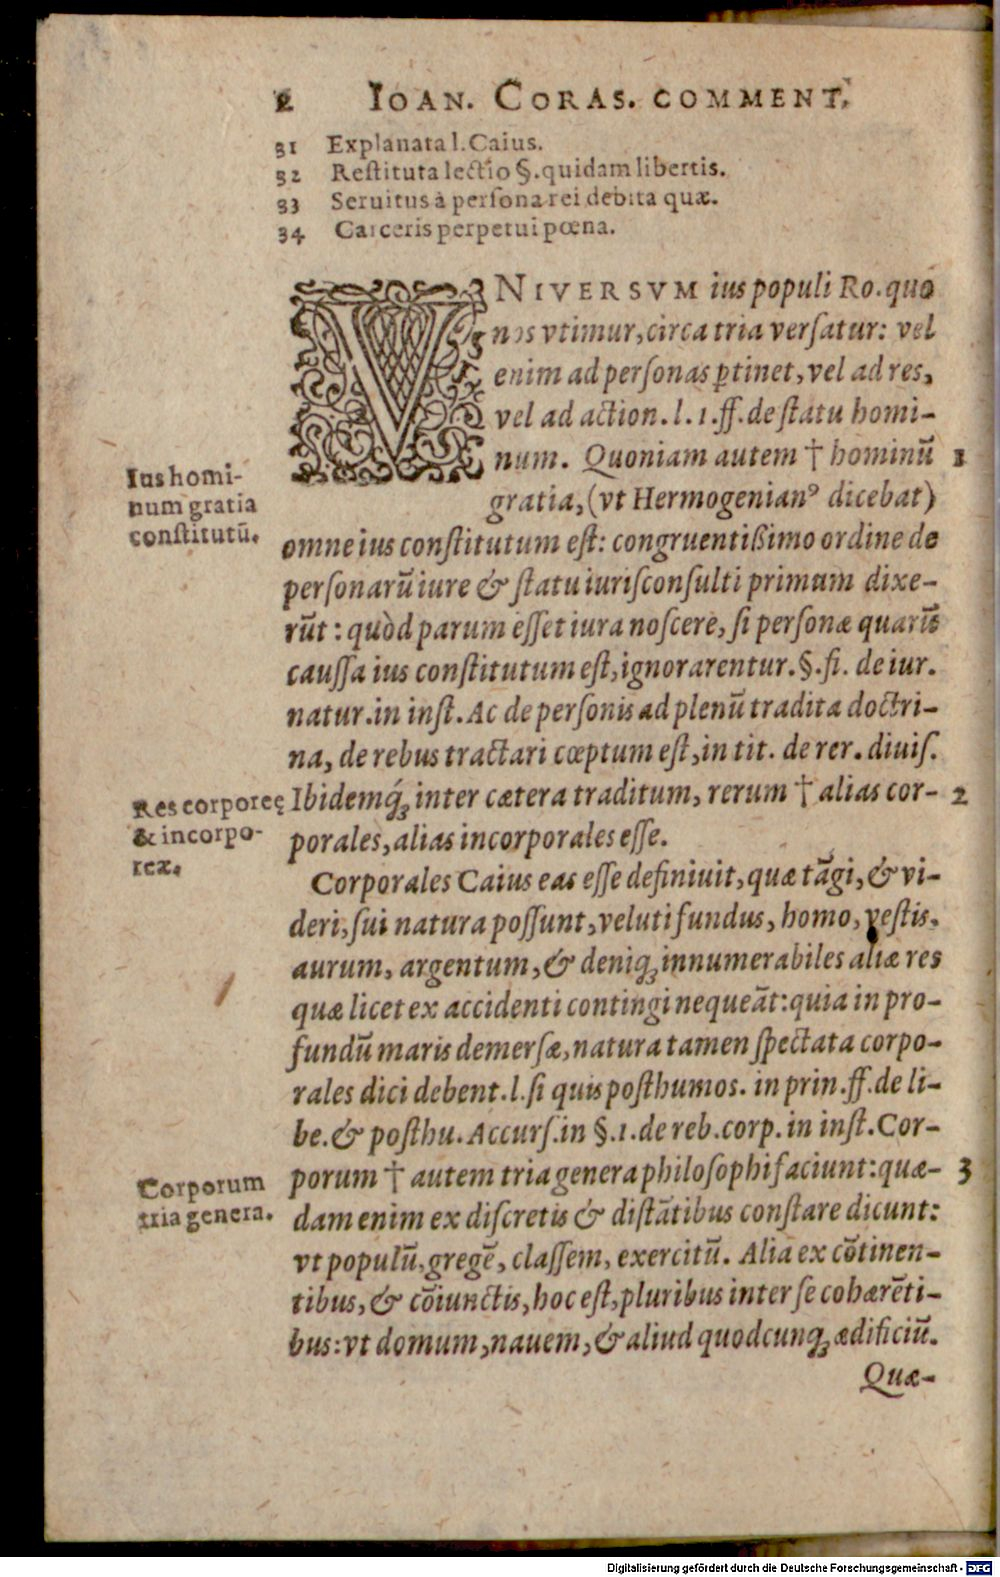 2 IOAN. CORAS. COMMENT.
31 Explanata l. Caius.
32 Restituta lectio §. quidam libertis.
33 Seruitus à persona rei debita quæ.
34 Carceris perpetui pœna.
VNIVERSVM ius populi Ro. quo
nos vtimur, circa tria versatur: vel
enim ad personas ꝑtinet, vel ad res,
vel ad action. l. 1. ff. de statu homi-
num. Quoniam autem † hominũ 1
gratia, (vt Hermogenianꝰ dicebat)
Ius homi-
num gratia
constitutũ.
omne ius constitutum est: congruentißimo ordine de
personarũ iure & statu iurisconsulti primum dixe-
rũt: quòd parum esset iura noscere, si personæ quarũ
caussa ius constitutum est, ignorarentur. §. fi. de iur.
natur. in inst. Ac de personis ad plenũ tradita doctri-
na, de rebus tractari cœptum est, in tit. de rer. diuis.
Res corporeę
& incorpo-
reæ.
Ibidemq́ꝫ inter cætera traditum, rerum † alias cor- 2
porales, alias incorporales esse.
Corporales Caius eas esse definiuit, quæ tãgi, & vi-
deri, sui natura possunt, veluti fundus, homo, vestis,
aurum, argentum, & deniqꝫ innumerabiles aliæ res
quæ licet ex accidenti contingi nequeãt: quia in pro-
fundũ maris demersæ, natura tamen spectata corpo-
rales dici debent. l. si quis posthumos. in prin. ff. de li-
be. & posthu. Accurs. in §. 1. de reb. corp. in inst. Cor-
porum † autem tria genera philosophi faciunt: quæ- 3
Corporum
tria genera.
dam enim ex discretis & distãtibus constare dicunt:
vt populũ, gregẽ, classem, exercitũ. Alia ex cõtinen-
tibus, & cõiunctis, hoc est, pluribus inter se cohærẽti-
bus: vt domum, nauem, & aliud quodcunqꝫ ædificiũ.
Quæ-
Digitalisierung gefördert durch die Deutsche Forschungsgemeinschaft - DFG